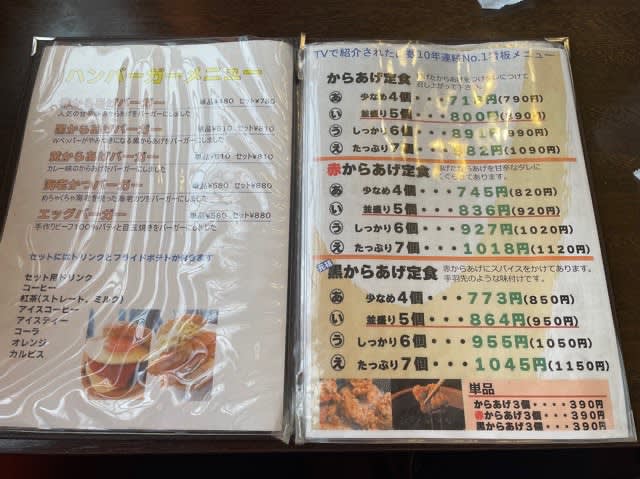 ハンバーガーメニュー
からあげバーガー
単品¥480 セット¥780
人気の
からあげをバーガーにしました
黒からあげバーガー
単品¥510 セット¥810
Wペッパーがやみつきになる黒からあげをバーガーにしました
黄からあげバーガー
単品¥510 セット¥810
カレー味のからあげをバーガーにしました
海老かつバーガー
単品¥580 セット¥880
めちゃくちゃ海老を使った海老カツをバーガーにしました
エッグバーガー
単品¥580 セット¥880
手作りビーフ100%パティと目玉焼きをバーガーにしました
セットにはドリンクとフライドポテトが付きます
セット用ドリンク
コーヒー
紅茶(ストレート、ミルク)
アイスコーヒー
アイスティー
コーラ
オレンジ
カルピス
TVで紹介された 10年連続No.1看板メニュー
からあげ定食
揚げたからあげをつけダレにつけて
召し上がって下さい。
あ 少なめ4個・・・718円(790円)
い 並盛り5個・・・800円(890円)
う しっかり6個・・・891円(990円)
え たっぷり7個・・・982円(1090円)
赤からあげ定食
揚げたからあげを甘辛なタレに
くぐらせてあります。
あ 少なめ4個・・・745円(820円)
い 並盛り5個・・・836円(920円)
う しっかり6個・・・927円(1020円)
え たっぷり7個・・・1018円(1120円)
黒からあげ定食
赤からあげにスパイスをかけてあります。
手羽先のような味付けです。
あ 少なめ4個・・・773円(850円)
い 並盛り5個・・・864円(950円)
う しっかり6個・・・955円(1050円)
え たっぷり7個・・・1045円(1150円)
単品
からあげ3個・・・・390円
赤からあげ3個・・・390円
黒からあげ3個・・・390円